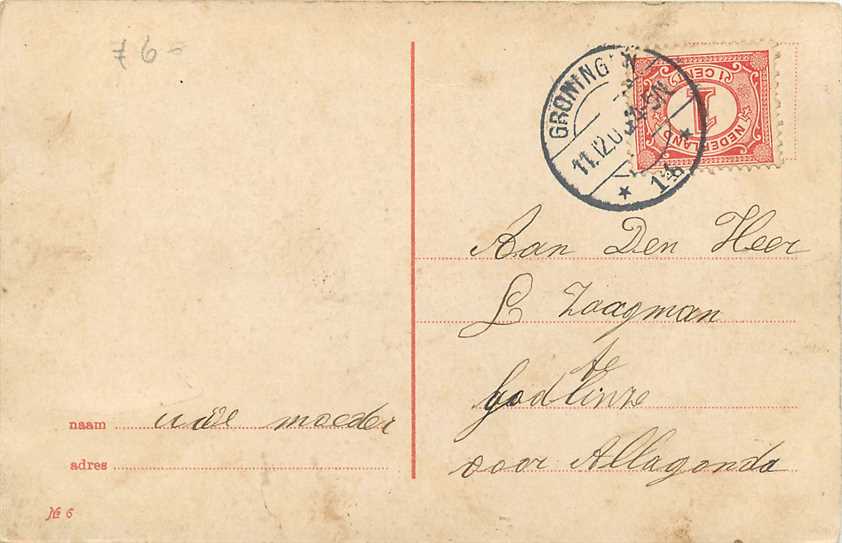 76-
GRONING
11.12.0
1-N
NEDERLAND
1 CENT
1
Aan Den Heer
L Zaagman
te
Godlinze
voor Allagonda
naam uwe moeder
adres
№ 6